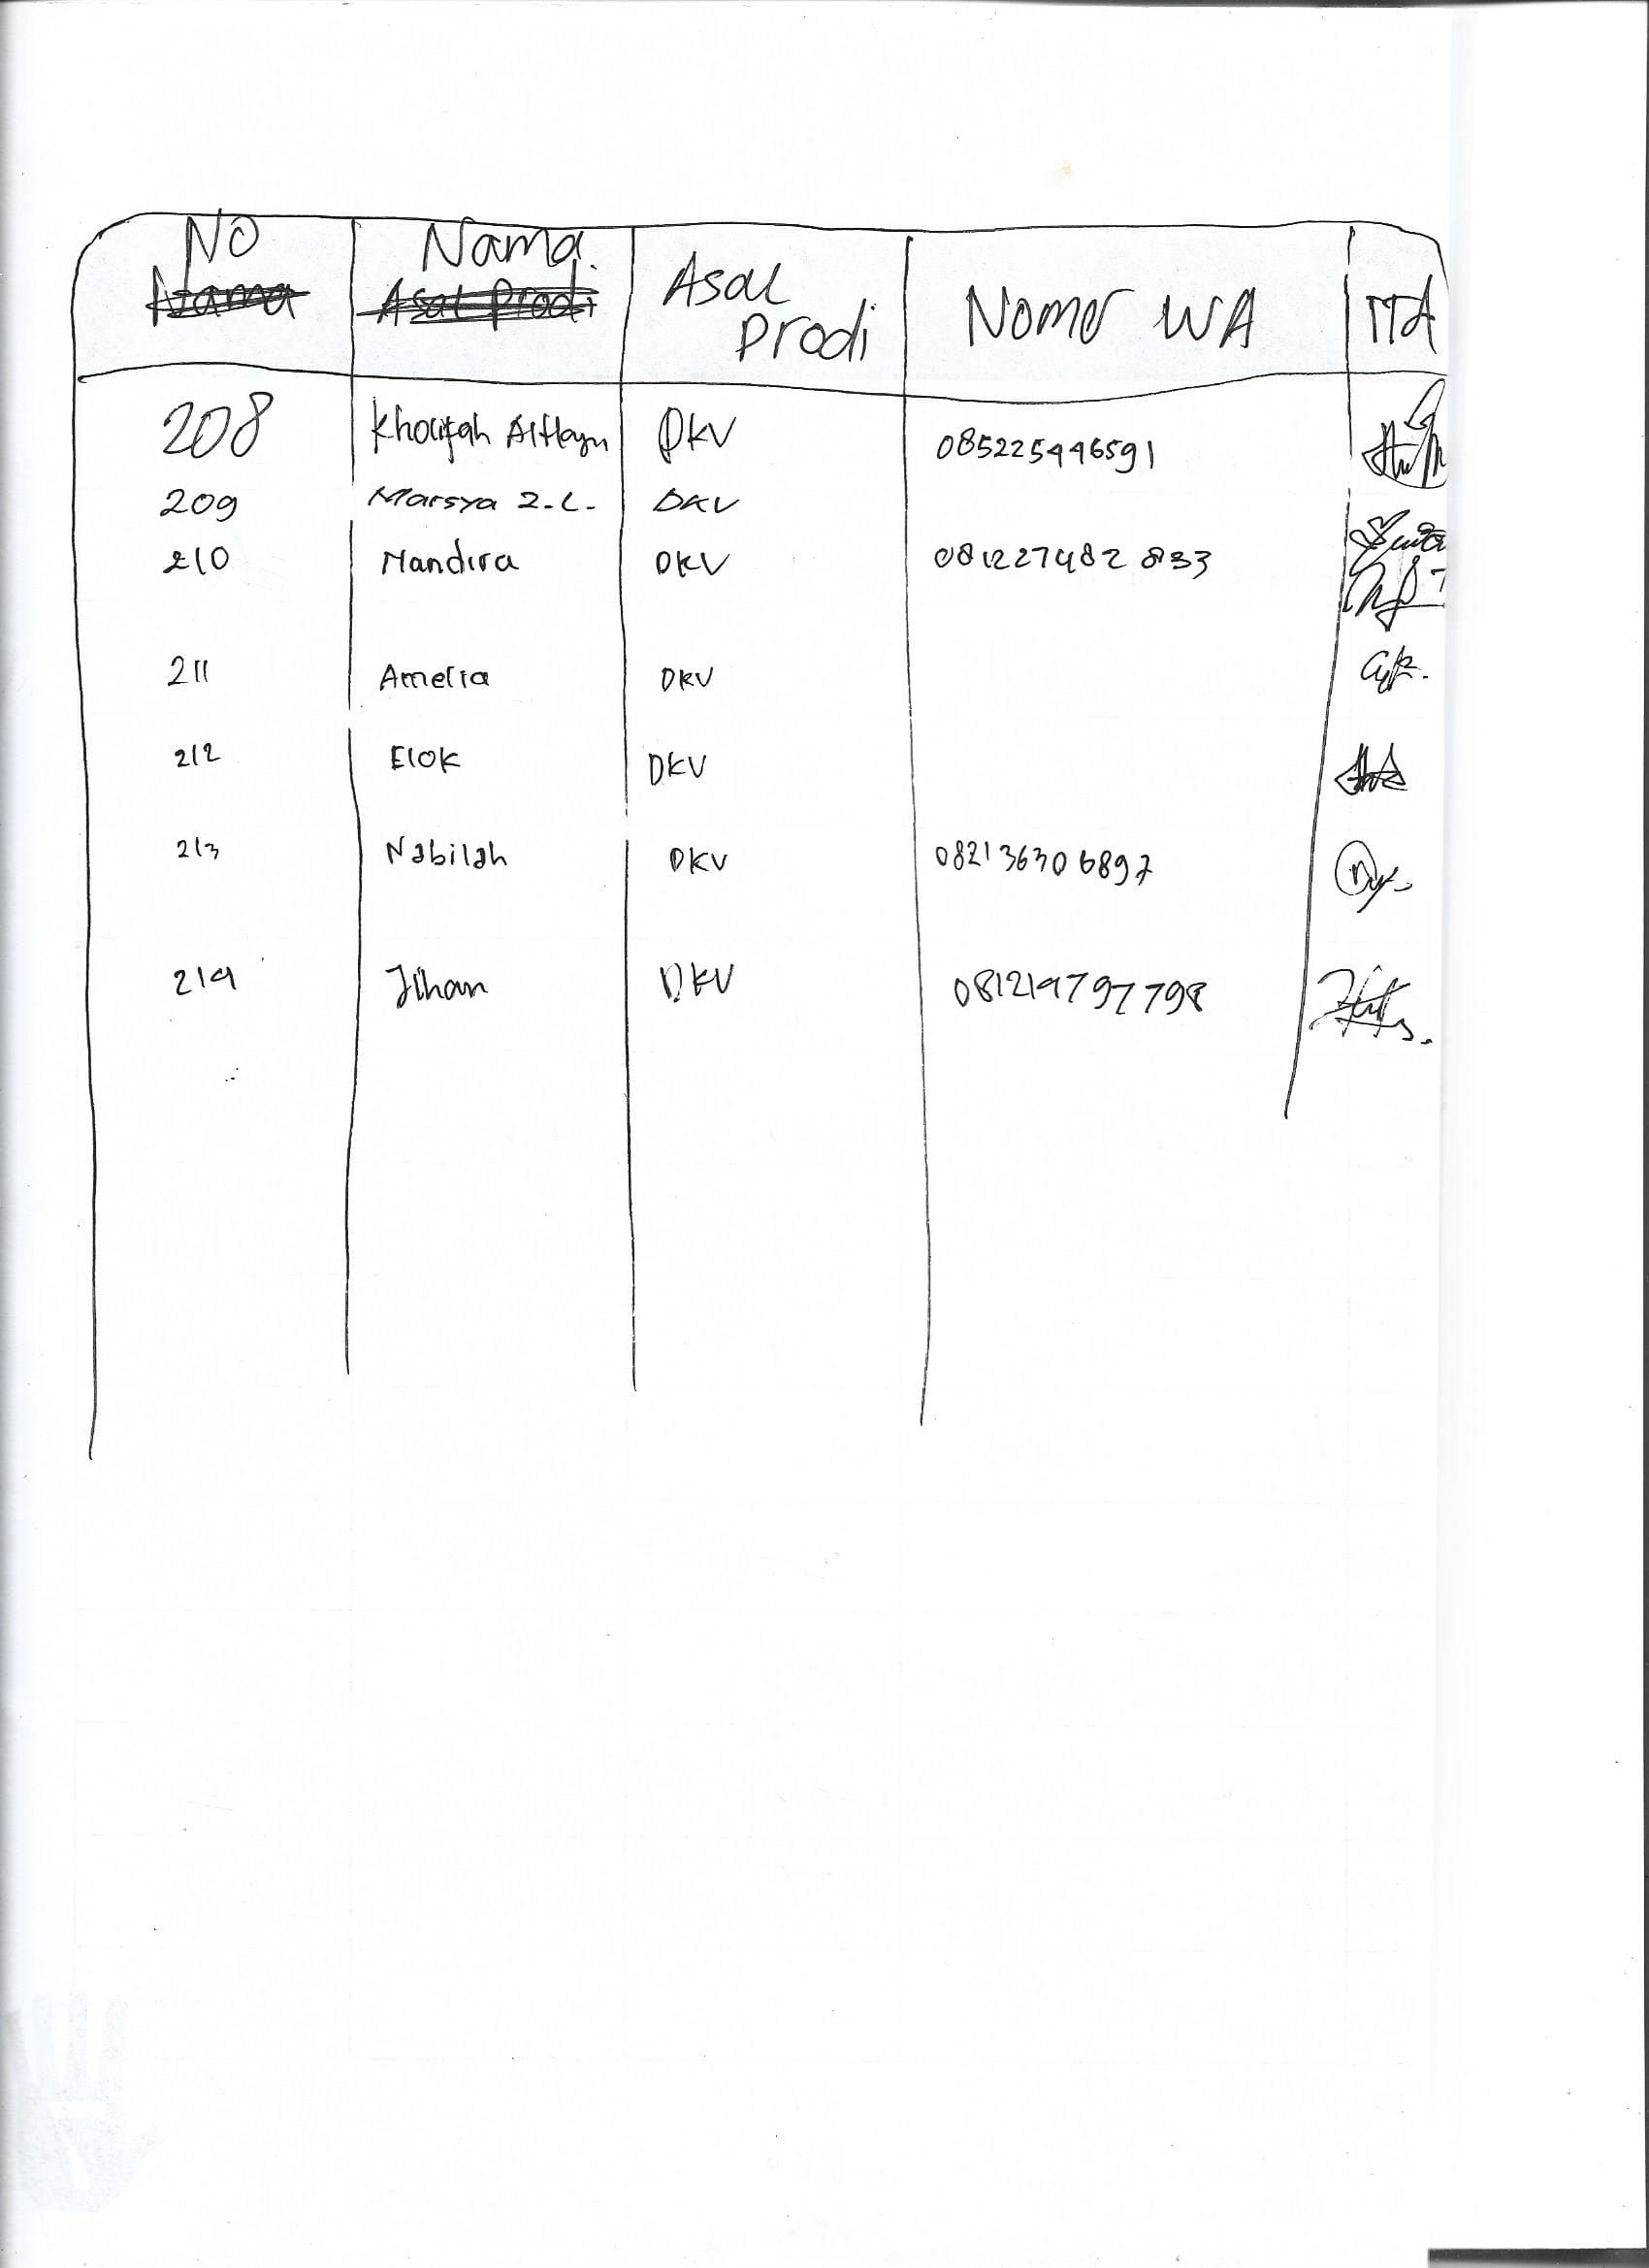 NO Nama Asal Prodi Nomor WA TTA
Nama Asal Prodi
208 Kholifah DKV 085225446591
209 Marsya Z.L. DKV
210 Nandira DKV 081227482833
211 Amelia DKV
212 Elok DKV
213 Nabilah DKV 082136306897
214 Jihan DKV 081219797798